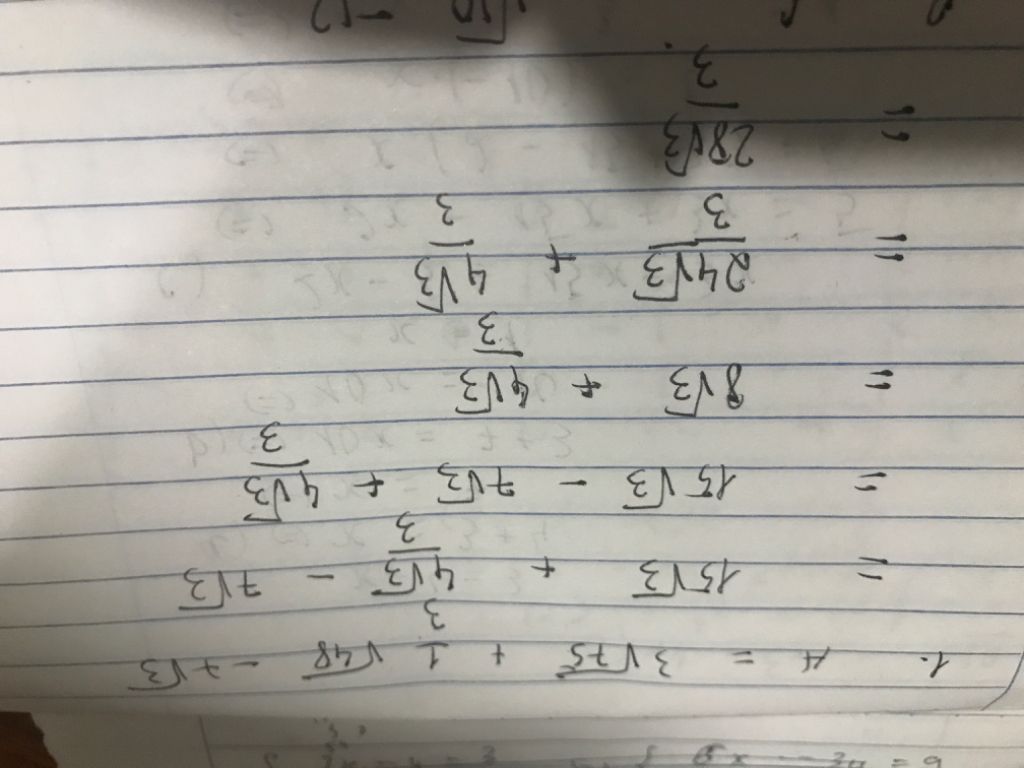 1. A = 3√75 + 1/3 √48 - 7√3
= 15√3 + 4√3/3 - 7√3
= 15√3 - 7√3 + 4√3/3
= 8√3 + 4√3/3
= 24√3/3 + 4√3/3
= 28√3/3